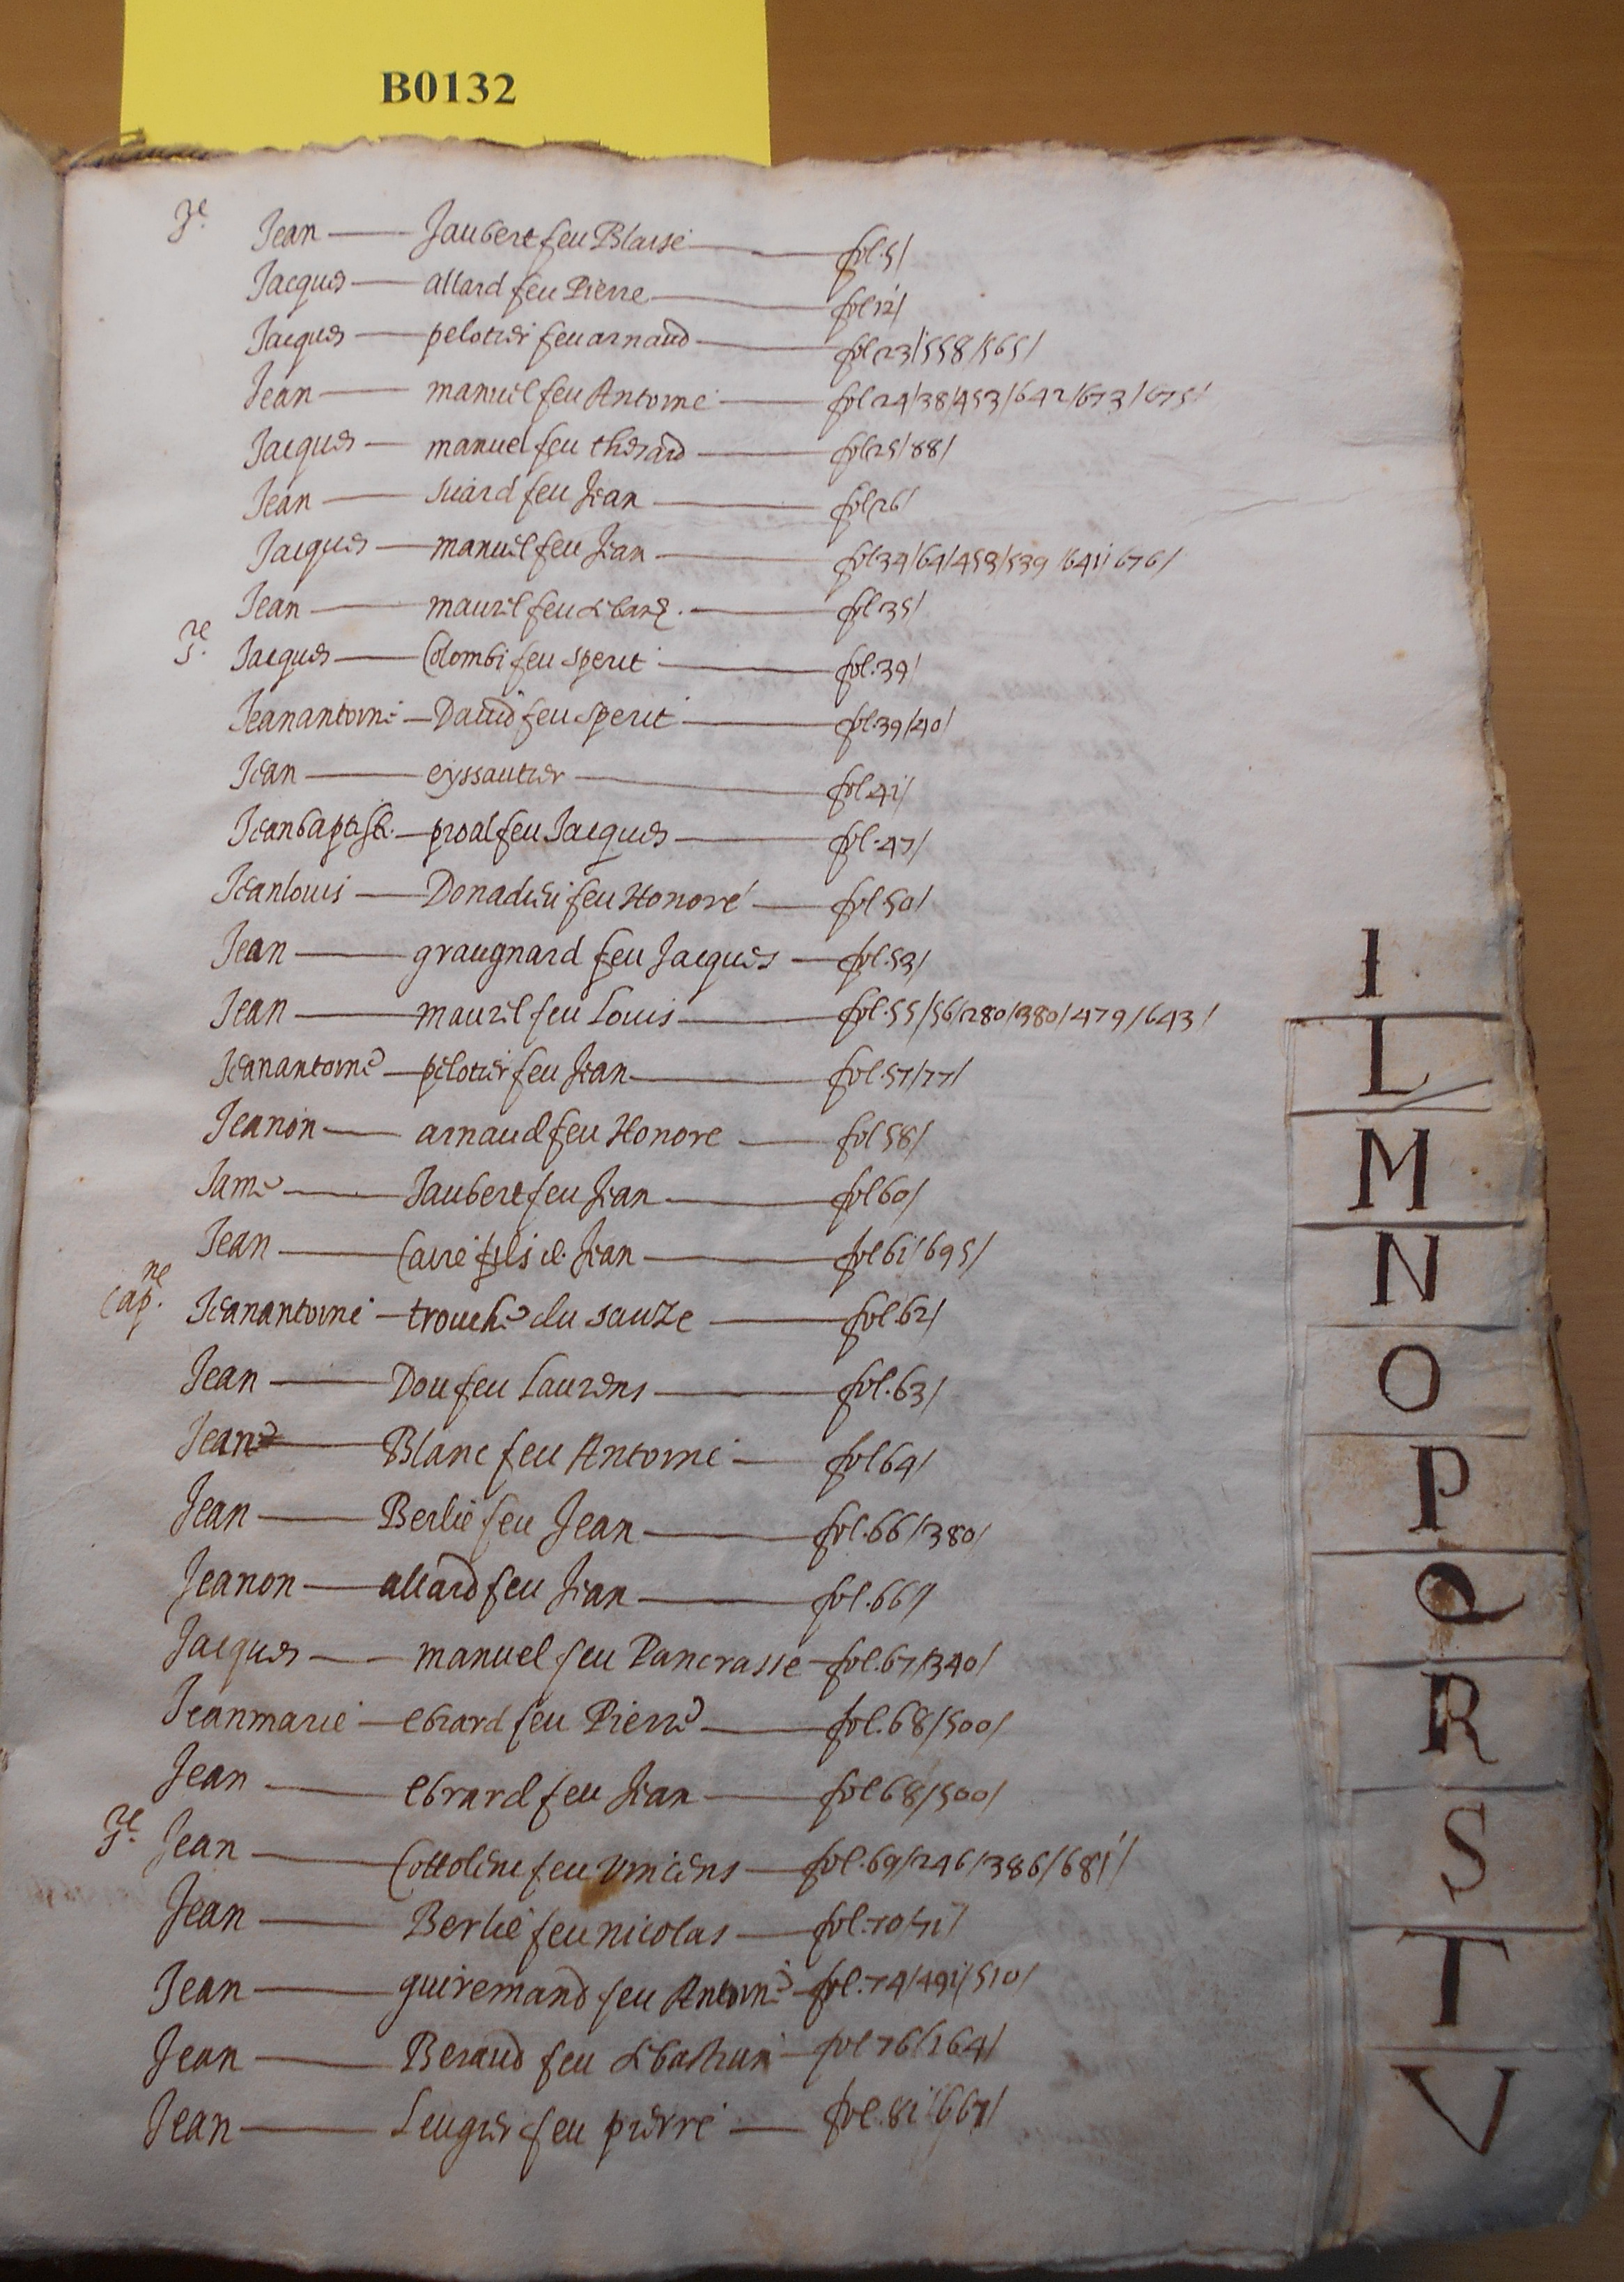 B0132
Jean — Jaubert feu Blaise — fol.5/
Jacques — allard feu Pierre — fol 12/
Jacques — pelotier feu arnaud — fol 23/558/565/
Jean — manuel feu Antoine — fol 24/38/453/642/673/675/
Jacques — manuel feu — fol 25/88/
Jean — suard feu Jean — fol 26/
Jacques — manuel feu Jean — fol 34/64/453/539/641/676/
Jean — maurel feu — fol 35/
Jacques — Colombi feu sperit — fol.39/
Jeanantoine — David feu sperit — fol.39/40/
Jean — eyssautier — fol 41/
Jeanbaptiste — proal feu Jacques — fol.47/
Jeanlouis — Donadieu feu Honoré — fol.50/
Jean — graugnard feu Jacques — fol.53/
Jean — maurel feu Louis — fol.55/56/280/380/479/643/
Jeanantoine — pelotier feu Jean — fol.57/77/
Jeanon — arnaud feu Honore — fol 58/
Jame — Jaubert feu Jean — fol 60/
Jean — Caire fils d. Jean — fol 61/695/
Cap.ne Jeanantoine — trouche du sauze — fol.62/
Jean — Dou feu Laurens — fol.63/
Jean — Blanc feu Antoine — fol 64/
Jean — Berlie feu Jean — fol.66/380/
Jeanon — allard feu Jean — fol.66/
Jacques — manuel feu Pancrasse — fol.67/340/
Jeanmarie — ebrard feu Pierre — fol.68/500/
Jean — ebrard feu Jean — fol 68/500/
Jean — Cottolene feu vincens — fol.69/246/386/681/
Jean — Berlie feu nicolas — fol.70/71/
Jean — guiremand feu Antoine — fol.74/491/510/
Jean — Beraud feu sebastian — fol 76/164/
Jean — Leugier feu pierre — fol.81/667/
I
L
M
N
O
P
Q
R
S
T
V